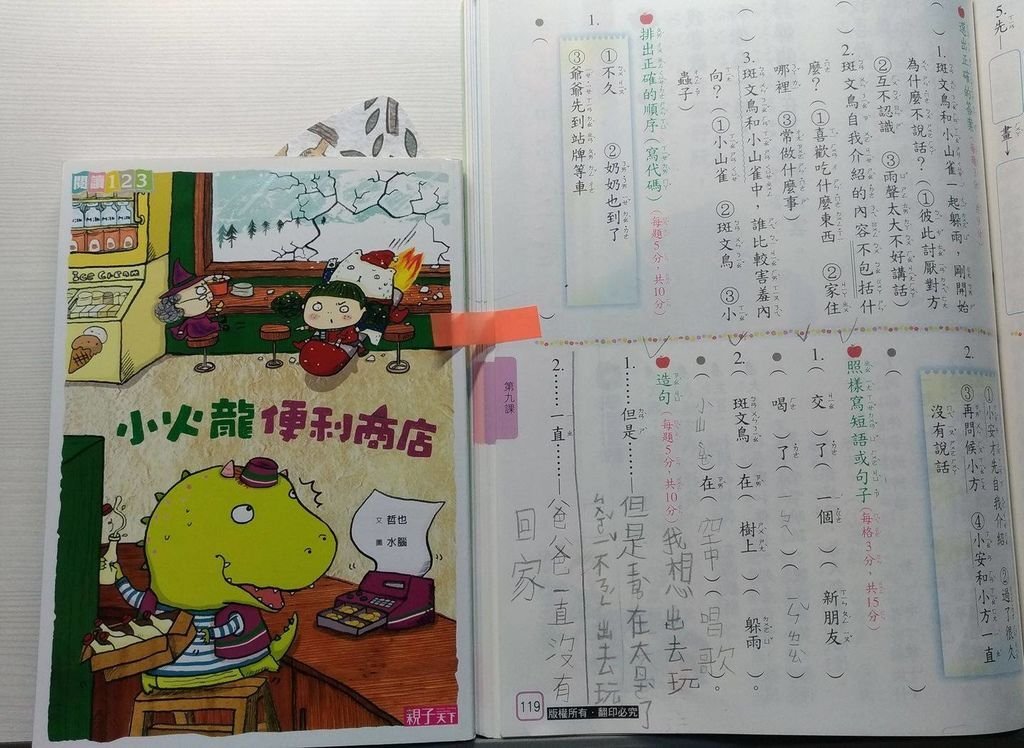 閱讀123
Ice Cream
小火龍便利商店
文 哲也
圖 水腦
親子天下
5.先
畫
選出正確的答案
1.斑文鳥和小山雀一起躲雨，剛開始
為什麼不說話？（①彼此討厭對方
②互不認識 ③雨聲太大不好講話）
2.斑文鳥自我介紹的內容不包括什
麼？（①喜歡吃什麼東西 ②家住
哪裡 ③常做什麼事）
3.斑文鳥和小山雀中，誰比較害羞內
向？（①小山雀 ②斑文鳥 ③小
蟲子）
排出正確的順序（寫代碼）（每題5分，共10分）
1.
①不久 ②奶奶也到了
③爺爺先到站牌等車
2.
①小安才先自我介紹 ②過了很久
③再問候小方 ④小安和小方一直
沒有說話
照樣寫短語或句子（每格3分，共15分）
1.交（ㄐㄧㄠ）了 一個 新朋友
喝（ ）了（ ）（ ）
2.斑文鳥 在 樹上 躲雨
（小山雀）在（空中）（唱歌）。
造句（每題5分，共10分）
1.……但是……我想出去玩
但是喜在太晚了
爸爸不ㄖㄤ出去玩
2.……一直……爸爸一直沒有
回家
第九課
119
版權所有·翻印必究